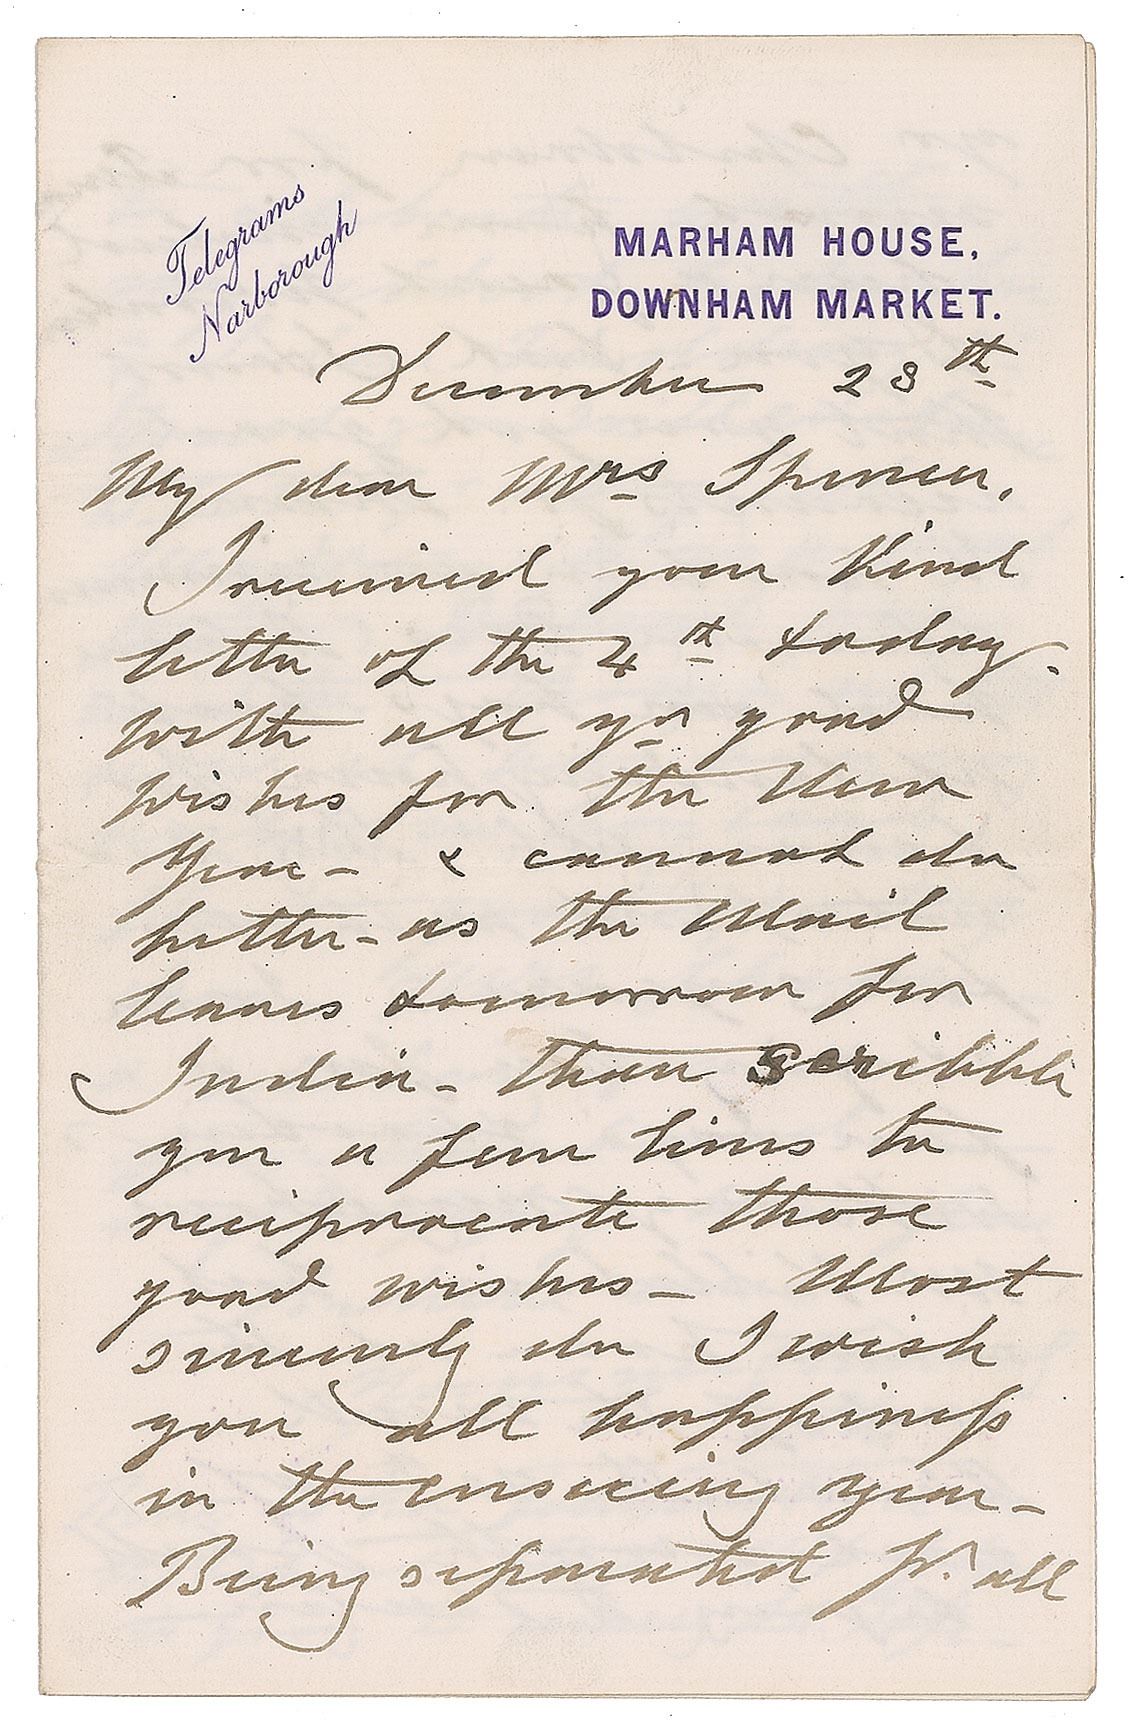 Telegrams
Narborough
MARHAM HOUSE,
DOWNHAM MARKET.
December 28th
My dear Mrs Spencer,
I received your Kind
letter of the 4th today.
with all yr good
wishes for the New
Year - & cannot do
better - as the Mail
leaves tomorrow for
India - than scribble
you a few lines to
reciprocate those
good wishes - Most
sincerely do I wish
you all happiness
in the ensuing year -
Being separated fr. all